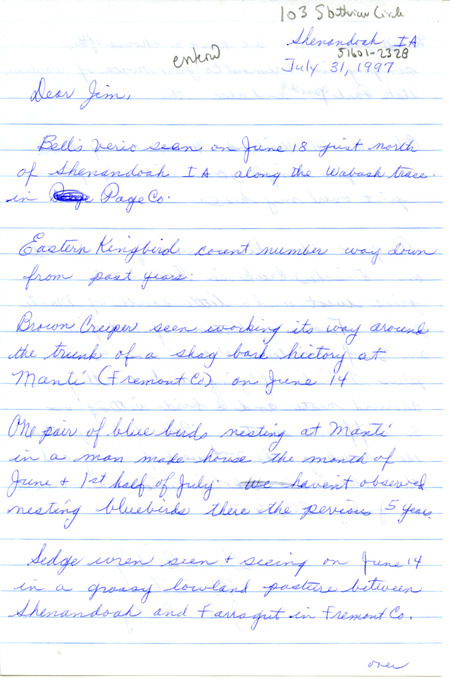 103 Sothview Circle
Shenandoah IA
51601-2328
entered
July 31, 1997
Dear Jim,
Bell's Verio seen on June 18 just north
of Shenandoah IA along the Wabash trace.
in Page Co.
Eastern Kingbird count number way down
from past years.
Brown Creeper seen working its way around
the trunk of a shag bark hictory at
Manti (Fremont Co) on June 14
One pair of blue birds nesting at Manti
in a man made house the month of
June + 1st half of July. We haven't observed
nesting bluebirds there the pervious 5 years.
Sedge wren seen + seeing on June 14
in a grassy lowland pasture between
Shenandoah and Farragut in Fremont Co.
over